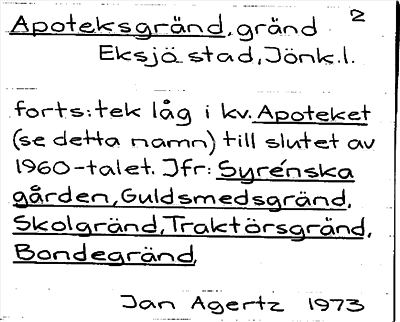 Apoteksgränd, gränd 2
Eksjö stad, Jönk.l.
forts:tek låg i kv. Apoteket
(se detta namn) till slutet av
1960-talet. Jfr: Syrénska
gården, Guldsmedsgränd,
Skolgränd, Traktörsgränd,
Bondegränd,
Jan Agertz 1973